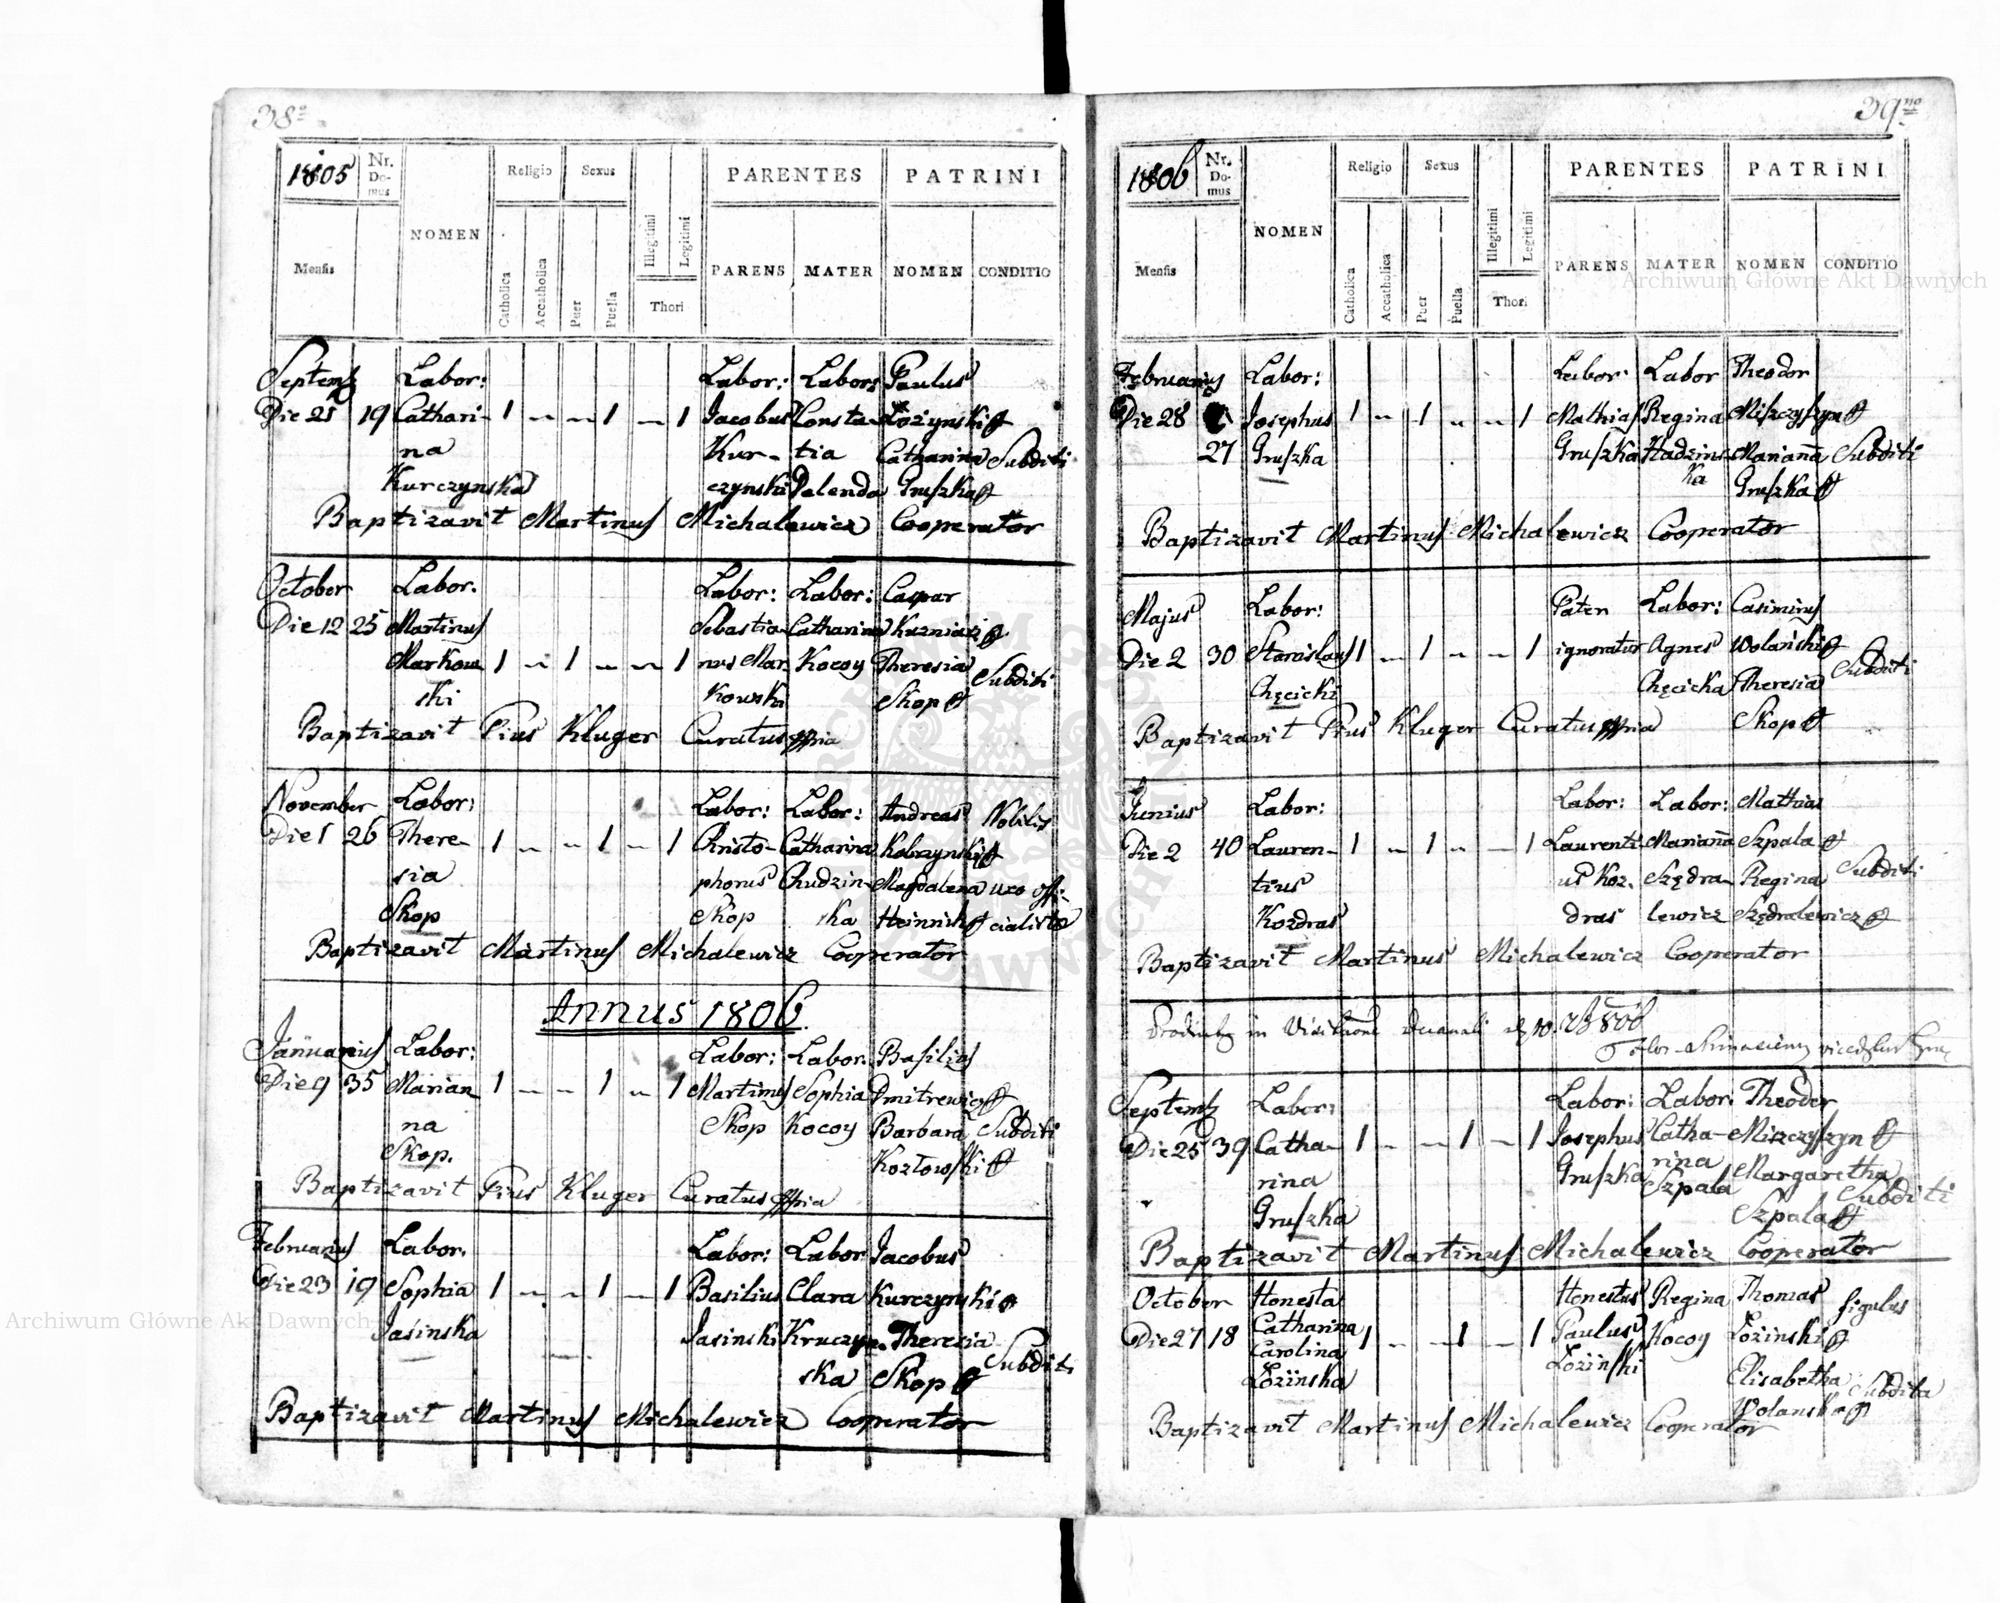 38
1805
Nr. Do- mus
NOMEN
Religio
Sexus
PARENTES
PATRINI
Mensis
Catholica
Accatholica
Puer
Puella
Illegitimi
Legitimi
Thori
PARENS
MATER
NOMEN
CONDITIO
Septemb Labor: Labor: Labor: Paulus
Die 21 19 Cathari- 1 - - 1 - 1 Jacobus Consta- Łozynski
na Kur- tia Catharina Subditi
Kurczynska czynski Delenda Gruszka
Baptizavit Martinus Michalewicz Cooperator
October Labor. Labor: Labor: Caspar
Die 12 25 Martinus Sebastia- Catharina Kuzniarz
Markow 1 - 1 - - 1 nus Mar Kocoy Theresia Subditi
ski kowski Skop
Baptizavit Pius Kluger Curatus
November Labor: Labor: Labor: Andreas Nobilis
Die 1 26 There- 1 - - 1 - 1 Christo- Catharina Kobzynski
sia phorus Chudzin- Magdalena uxo offi-
Skop Skop ska Heinrich cialista
Baptizavit Martinus Michalewicz Cooperator
Annus 1806
Januarius Labor: Labor: Labor. Basilius
Die 9 35 Marian 1 - - 1 - 1 Martinus Sophia Dmitrewicz
na Skop Kocoy Barbara Subditi
Skop. Kozłowski
Baptizavit Pius Kluger Curatus
Februarius Labor. Labor: Labor Jacobus
Die 23 19 Sophia 1 - - 1 - 1 Basilius Clara Kurczynski
Jasinska Jasinski Kruczyn Theresia Subditi
ska Skop
Baptizavit Martinus Michalewicz Cooperator
39no
1806
Nr. Do- mus
NOMEN
Religio
Sexus
PARENTES
PATRINI
Mensis
Catholica
Accatholica
Puer
Puella
Illegitimi
Legitimi
Thori
PARENS
MATER
NOMEN
CONDITIO
Februarius Labor: Labor: Labor Theodor
Die 28 Josephus 1 - 1 - - 1 Mathias Regina Miszczyszyn
27 Gruszka Gruszka Hadzins Marianna Subditi
ka Gruszka
Baptizavit Martinus Michalewicz Cooperator
Majus Labor: Pater Labor: Casimirus
Die 2 30 Stanislaus 1 - 1 - - 1 ignoratur Agnes Wolański
Chęcicki Chęcicka Theresia Subditi
Skop
Baptizavit Pius Kluger Curatus
Junius Labor: Labor: Labor: Mathias
Die 2 40 Lauren- 1 - 1 - - 1 Laurenti Marianna Szpala
tius us Koz. Szędra- Regina Subditi
Kozdras dras lewicz Szędralewicz
Baptizavit Martinus Michalewicz Cooperator
in Decanali
Septemb Labor: Labor: Labor. Theodor
Die 25 39 Catha- 1 - - 1 - 1 Josephus Catha- Miszczyszyn
rina Gruszka rina Margaretha
Gruszka Szpala Szpala Subditi
Baptizavit Martinus Michalewicz Cooperator
October Honesta Honestus Regina Thomas figulus
Die 27 18 Catharina 1 - - 1 - 1 Paulus Kocoy Łozinski
Carolina Łozinski Elisabetha Subdita
Łozinska Wolanska
Baptizavit Martinus Michalewicz Cooperator
Archiwum Główne Akt Dawnych
Archiwum Główne Akt Dawnych
ARCHIWUM GŁÓWNE AKT DAWNYCH